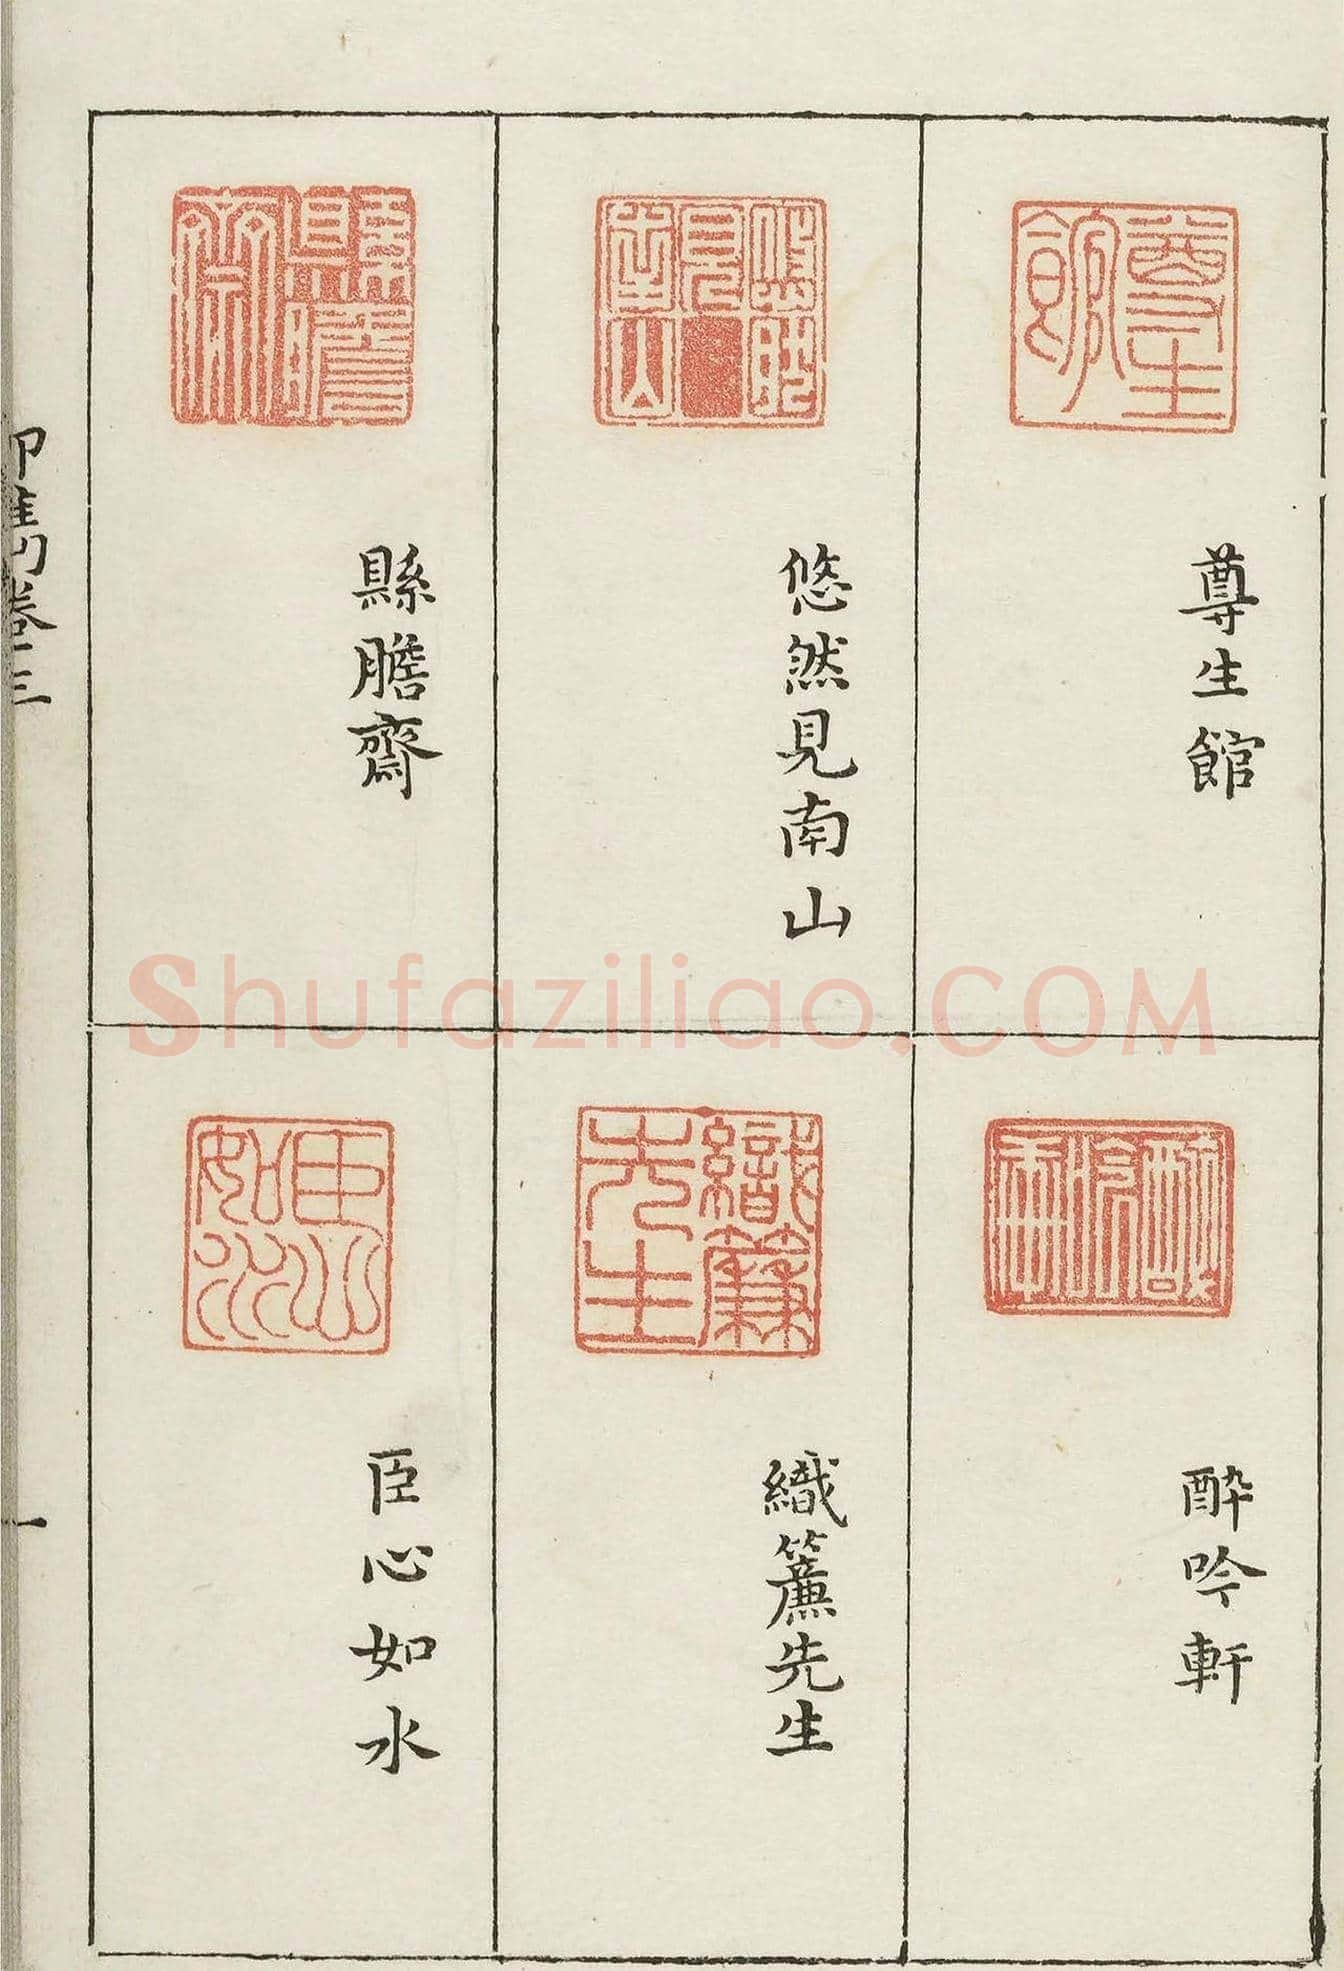 尊生館
悠然見南山
縣膽齋
醉吟軒
織簾先生
臣心如水
卷三
一
Shufaziliao.COM